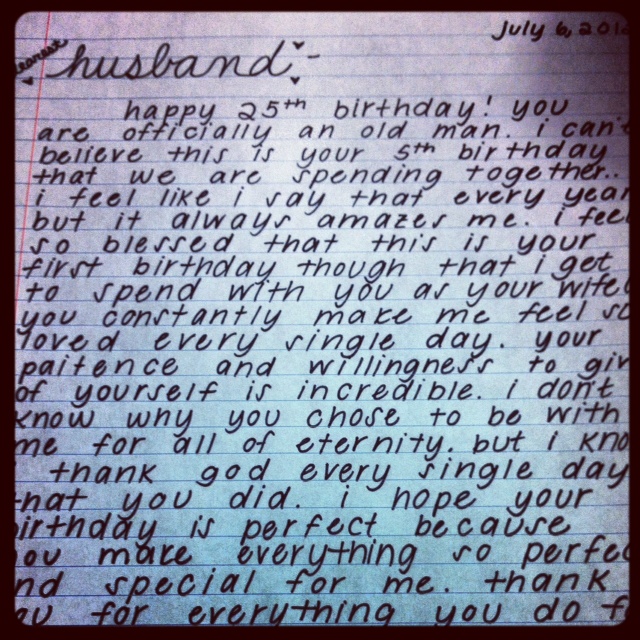 July 6, 201
dearest
husband-
happy 25th birthday! you
are officially an old man. i can't
believe this is your 5th birthday
that we are spending together..
i feel like i say that every year
but it always amazes me. i feel
so blessed that this is your
first birthday though that i get
to spend with you as your wife.
you constantly make me feel so
loved every single day. your
paitence and willingness to giv
of yourself is incredible. i don't
know why you chose to be with
me for all of eternity. but i kno
i thank god every single day
that you did. i hope your
birthday is perfect because
you make everything so perfec
and special for me. thank
you for everything you do f